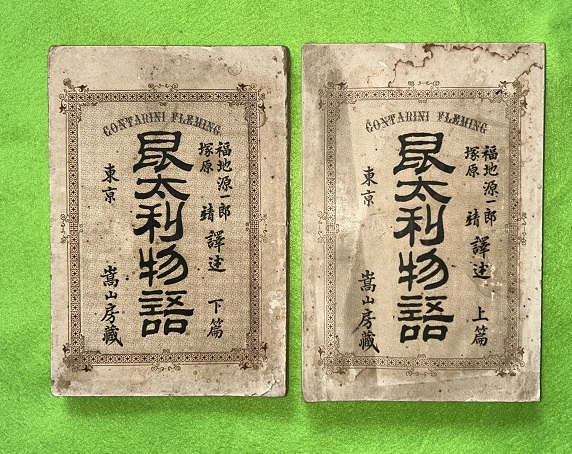 CONTARINI FLEMING
福地源一郎
塚原 靖
譯述 上篇
昆太利物語
東京 嵩山房藏
CONTARINI FLEMING
福地源一郎
塚原 靖
譯述 下篇
昆太利物語
東京 嵩山房藏